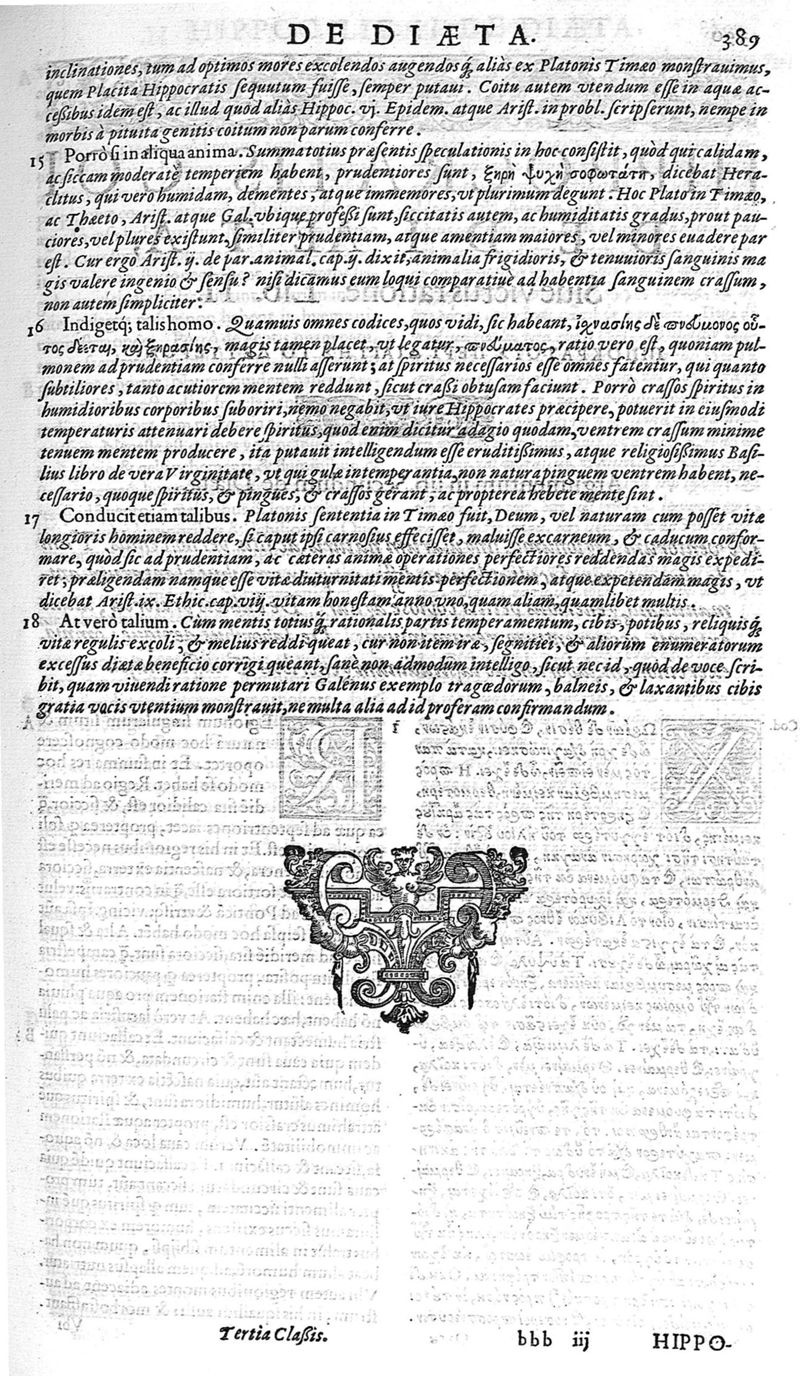 DE DIÆTA. 389
inclinationes, tum ad optimos mores excolendos augendosq́; aliàs ex Platonis Timæo monstrauimus,
quem Placita Hippocratis sequutum fuisse, semper putaui. Coitu autem vtendum esse in aquæ ac-
cessibus idem est, ac illud quod aliàs Hippoc. vj. Epidem. atque Arist. in probl. scripserunt, nempe in
morbis à pituita genitis coitum non parum conferre.
15 Porrò si in aliqua anima. Summa totius præsentis speculationis in hoc consistit, quòd qui calidam,
ac siccam moderatè temperiem habent, prudentiores sunt, ξηρὴ ψυχὴ σοφωτάτη, dicebat Hera-
clitus, qui verò humidam, dementes, atque immemores, vt plurimum degunt. Hoc Plato in Timæo,
ac Thæeto, Arist. atque Gal. vbique professi sunt, siccitatis autem, ac humiditatis gradus, prout pau-
ciores, vel plures existunt, similiter prudentiam, atque amentiam maiores, vel minores euadere par
est. Cur ergo Arist. ij. de par. animal. cap. ij. dixit, animalia frigidioris, & tenuioris sanguinis ma
gis valere ingenio & sensu? nisi dicamus eum loqui comparatiuè ad habentia sanguinem crassum,
non autem simpliciter:
16 Indigetq́; talis homo. Quamuis omnes codices, quos vidi, sic habeant, ἰχνασίης δὲ πνδύμονος οὗ-
τος δεῖται, καὶ ξηρασίης, magis tamen placet, vt legatur, πνδύματος, ratio vero est, quoniam pul-
monem ad prudentiam conferre nulli asserunt; at spiritus necessarios esse omnes fatentur, qui quanto
subtiliores, tanto acutiorem mentem reddunt, sicut crassi obtusam faciunt. Porrò crassos spiritus in
humidioribus corporibus suboriri, nemo negabit, vt iure Hippocrates præcipere, potuerit in eiusmodi
temperaturis attenuari debere spiritus, quod enim dicitur adagio quodam, ventrem crassum minime
tenuem mentem producere, ita putauit intelligendum esse eruditissimus, atque religiosissimus Basi-
lius libro de vera Virginitate, vt qui gulæ intemperantia, non natura pinguem ventrem habent, ne-
cessario, quoque spiritus, & pingues, & crassos gerant, ac propterea hebete mente sint.
17 Conducit etiam talibus. Platonis sententia in Timæo fuit, Deum, vel naturam cum posset vitæ
longioris hominem reddere, si caput ipsi carnosius effecisset, maluisse excarneum, & caducum confor-
mare, quòd sic ad prudentiam, ac cæteras animæ operationes perfectiores reddendas magis expedi-
ret; præligendam namque esse vitæ diuturnitati mentis perfectionem, atque expetendam magis, vt
dicebat Arist. ix. Ethic. cap. viij. vitam honestam anno vno, quam aliam, quamlibet multis.
18 At verò talium. Cum mentis totiusq́; rationalis partis temperamentum, cibis, potibus, reliquisq́;
vitæ regulis excoli, & melius reddi queat, cur non item iræ, segnitiei, & aliorum enumeratorum
excessus diætæ beneficio corrigi queant, sanè non admodum intelligo, sicut nec id, quòd de voce scri-
bit, quam viuendi ratione permutari Galenus exemplo tragœdorum, balneis, & laxantibus cibis
gratia vocis vtentium monstrauit, ne multa alia ad id proferam confirmandum.
Tertia Classis. bbb iij HIPPO-